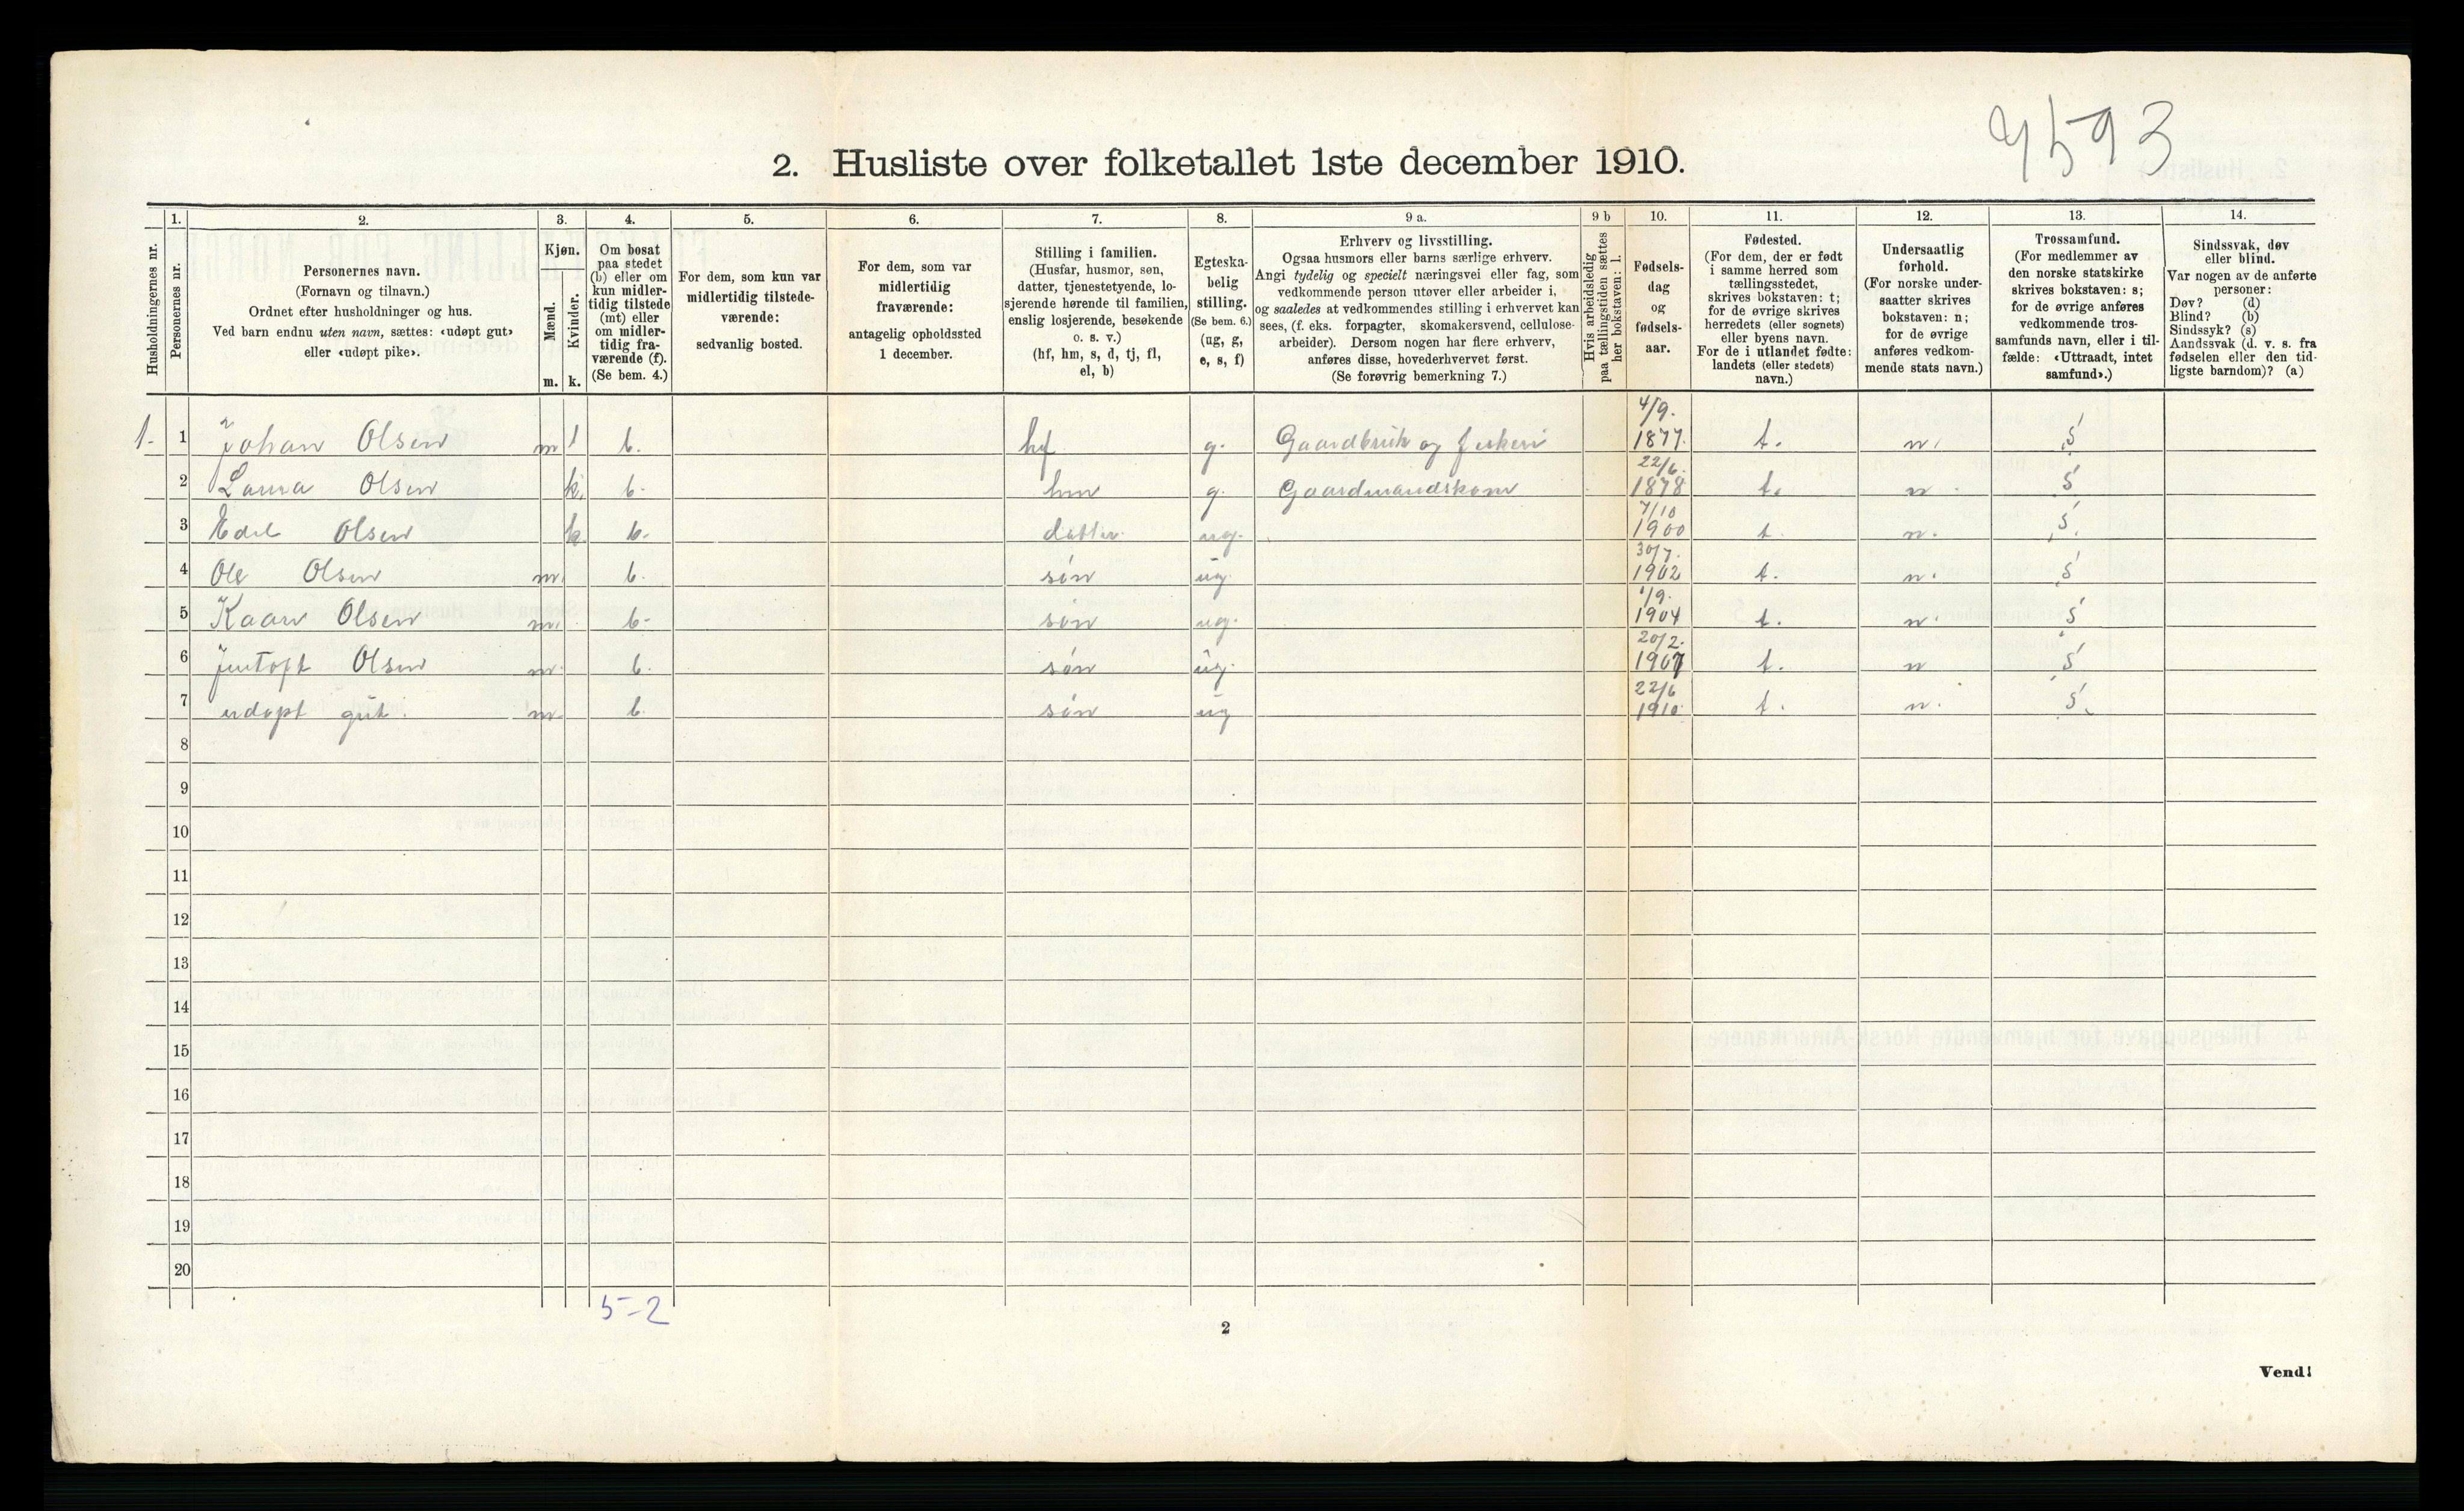 4593
2. Husliste over folketallet 1ste december 1910.
1. 2. 3. 4. 5. 6. 7. 8. 9 a. 9 b 10. 11. 12. 13. 14.
Husholdningernes nr.
Personernes nr.
Personernes navn.
(Fornavn og tilnavn.)
Ordnet efter husholdninger og hus.
Ved barn endnu uten navn, sættes: «udøpt gut»
eller «udøpt pike».
Kjøn.
Mænd.
Kvinder.
m. k.
Om bosat
paa stedet
(b) eller om
kun midler-
tidig tilstede
(mt) eller
om midler-
tidig fra-
værende (f).
(Se bem. 4.)
For dem, som kun var
midlertidig tilstede-
værende:
sedvanlig bosted.
For dem, som var
midlertidig
fraværende:
antagelig opholdssted
1 december.
Stilling i familien.
(Husfar, husmor, søn,
datter, tjenestetyende, lo-
sjerende hørende til familien,
enslig losjerende, besøkende
o. s. v.)
(hf, hm, s, d, tj, fl,
el, b)
Egteska-
belig
stilling.
(Se bem. 6.)
(ug, g,
e, s, f)
Erhverv og livsstilling.
Ogsaa husmors eller barns særlige erhverv.
Angi tydelig og specielt næringsvei eller fag, som
vedkommende person utøver eller arbeider i,
og saaledes at vedkommendes stilling i erhvervet kan
sees, (f. eks. forpagter, skomakersvend, cellulose-
arbeider). Dersom nogen har flere erhverv,
anføres disse, hovederhvervet først.
(Se forøvrig bemerkning 7.)
Hvis arbeidsledig
paa tællingstiden sættes
her bokstaven: l.
Fødsels-
dag
og
fødsels-
aar.
Fødested.
(For dem, der er født
i samme herred som
tællingsstedet,
skrives bokstaven: t;
for de øvrige skrives
herredets (eller sognets)
eller byens navn.
For de i utlandet fødte:
landets (eller stedets)
navn.)
Undersaatlig
forhold.
(For norske under-
saatter skrives
bokstaven: n;
for de øvrige
anføres vedkom-
mende stats navn.)
Trossamfund.
(For medlemmer av
den norske statskirke
skrives bokstaven: s;
for de øvrige anføres
vedkommende tros-
samfunds navn, eller i til-
fælde: «Uttraadt, intet
samfund».)
Sindssvak, døv
eller blind.
Var nogen av de anførte
personer:
Døv? (d)
Blind? (b)
Sindssyk? (s)
Aandssvak (d. v. s. fra
fødselen eller den tid-
ligste barndom)? (a)
1. 1 Johan Olsen m 1 b. hf g. Gaardbruk og fiskeri 4/9. 1877. t. n. s
2 Laura Olsen k. b. hm g. Gaardmandskone 22/6. 1878 t. n s
3 Edel Olsen k. b. datter ug. 7/10 1900 t. n. s.
4 Ole Olsen m. b. søn ug. 30/7. 1902 t. n. s
5 Kaare Olsen m. b. søn ug. 1/9. 1904 t. n. s
6 Jentoft Olsen m. b. søn ug. 20/2. 1907 t. n s
7 udøpt gut. m. b. søn ug 22/6 1910 t. n. s.
8
9
10
11
12
13
14
15
16
17
18
19
20
5-2
2
Vend!